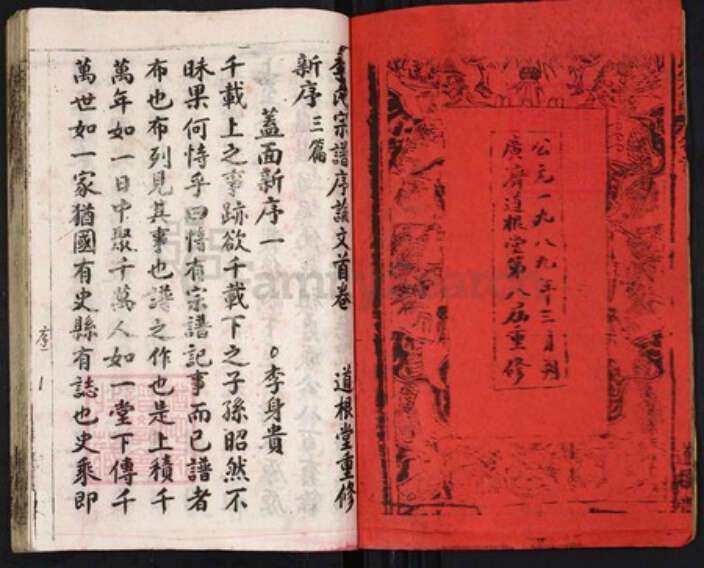 公元一九八九年三月刊
廣濟道根堂第八屆重修
李氏宗譜序該文首卷 道根堂重修
新序三篇
蓋面新序一 。李身貴
千載上之事跡欲千載下之子孫昭然不
昧果何恃乎曰恃有宗譜記事而已譜者
布也布列見其事也譜之作也是上積千
萬年如一日中聚千萬人如一堂下傳千
萬世如一家猶國有史縣有誌也史乘即
序一
1